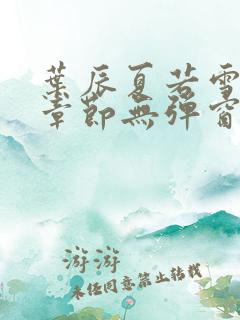 葉辰夏若雪
章節無彈窗
游游
未经同意禁止转载